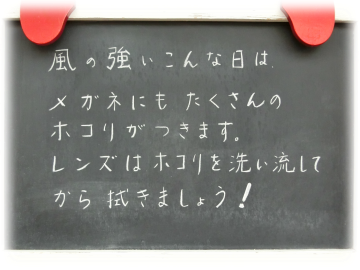 風の強いこんな日は、
メガネにもたくさんの
ホコリがつきます。
レンズはホコリを洗い流して
から拭きましょう!